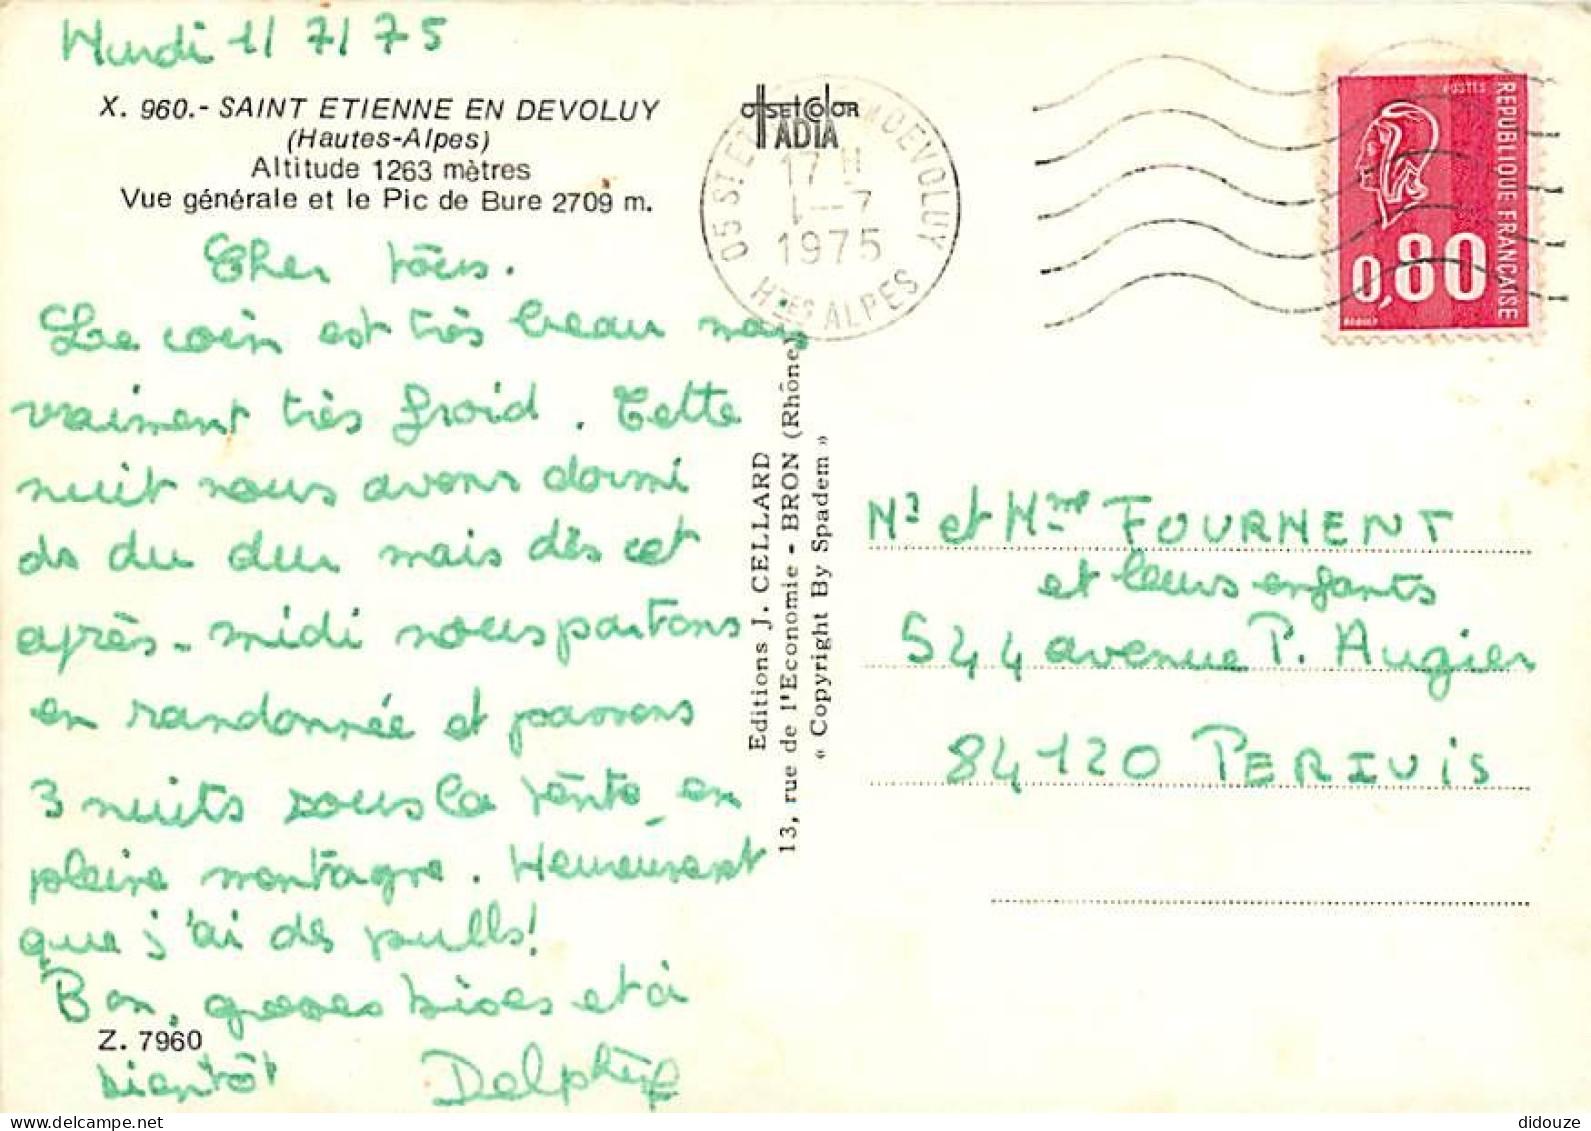 Murdi 1/7/75
X. 960.- SAINT ETIENNE EN DEVOLUY
(Hautes-Alpes)
Altitude 1263 mètres
Vue générale et le Pic de Bure 2709 m.
Cher tous.
Le coin est très beau mais
vraiment très froid. Cette
nuit nous avons dormi
ds du dur mais dès cet
après-midi nous partons
en randonnée et passons
3 nuits sous la tente, en
pleine montagne. Heureusement
que j'ai des pulls!
Bon, grosses bises et à
bientôt Delphine
Z. 7960
OffsetColor
ADIA
05 ST ETIENNE EN DEVOLUY
17 H
1-7
1975
HTES ALPES
POSTES
REPUBLIQUE FRANÇAISE
0,80
BEQUET
Editions J. CELLARD
13, rue de l'Economie - BRON (Rhône)
« Copyright By Spadem »
Mr et Mme FOURMENT
et leurs enfants
544 avenue P. Augier
84120 PERTUIS
didouze